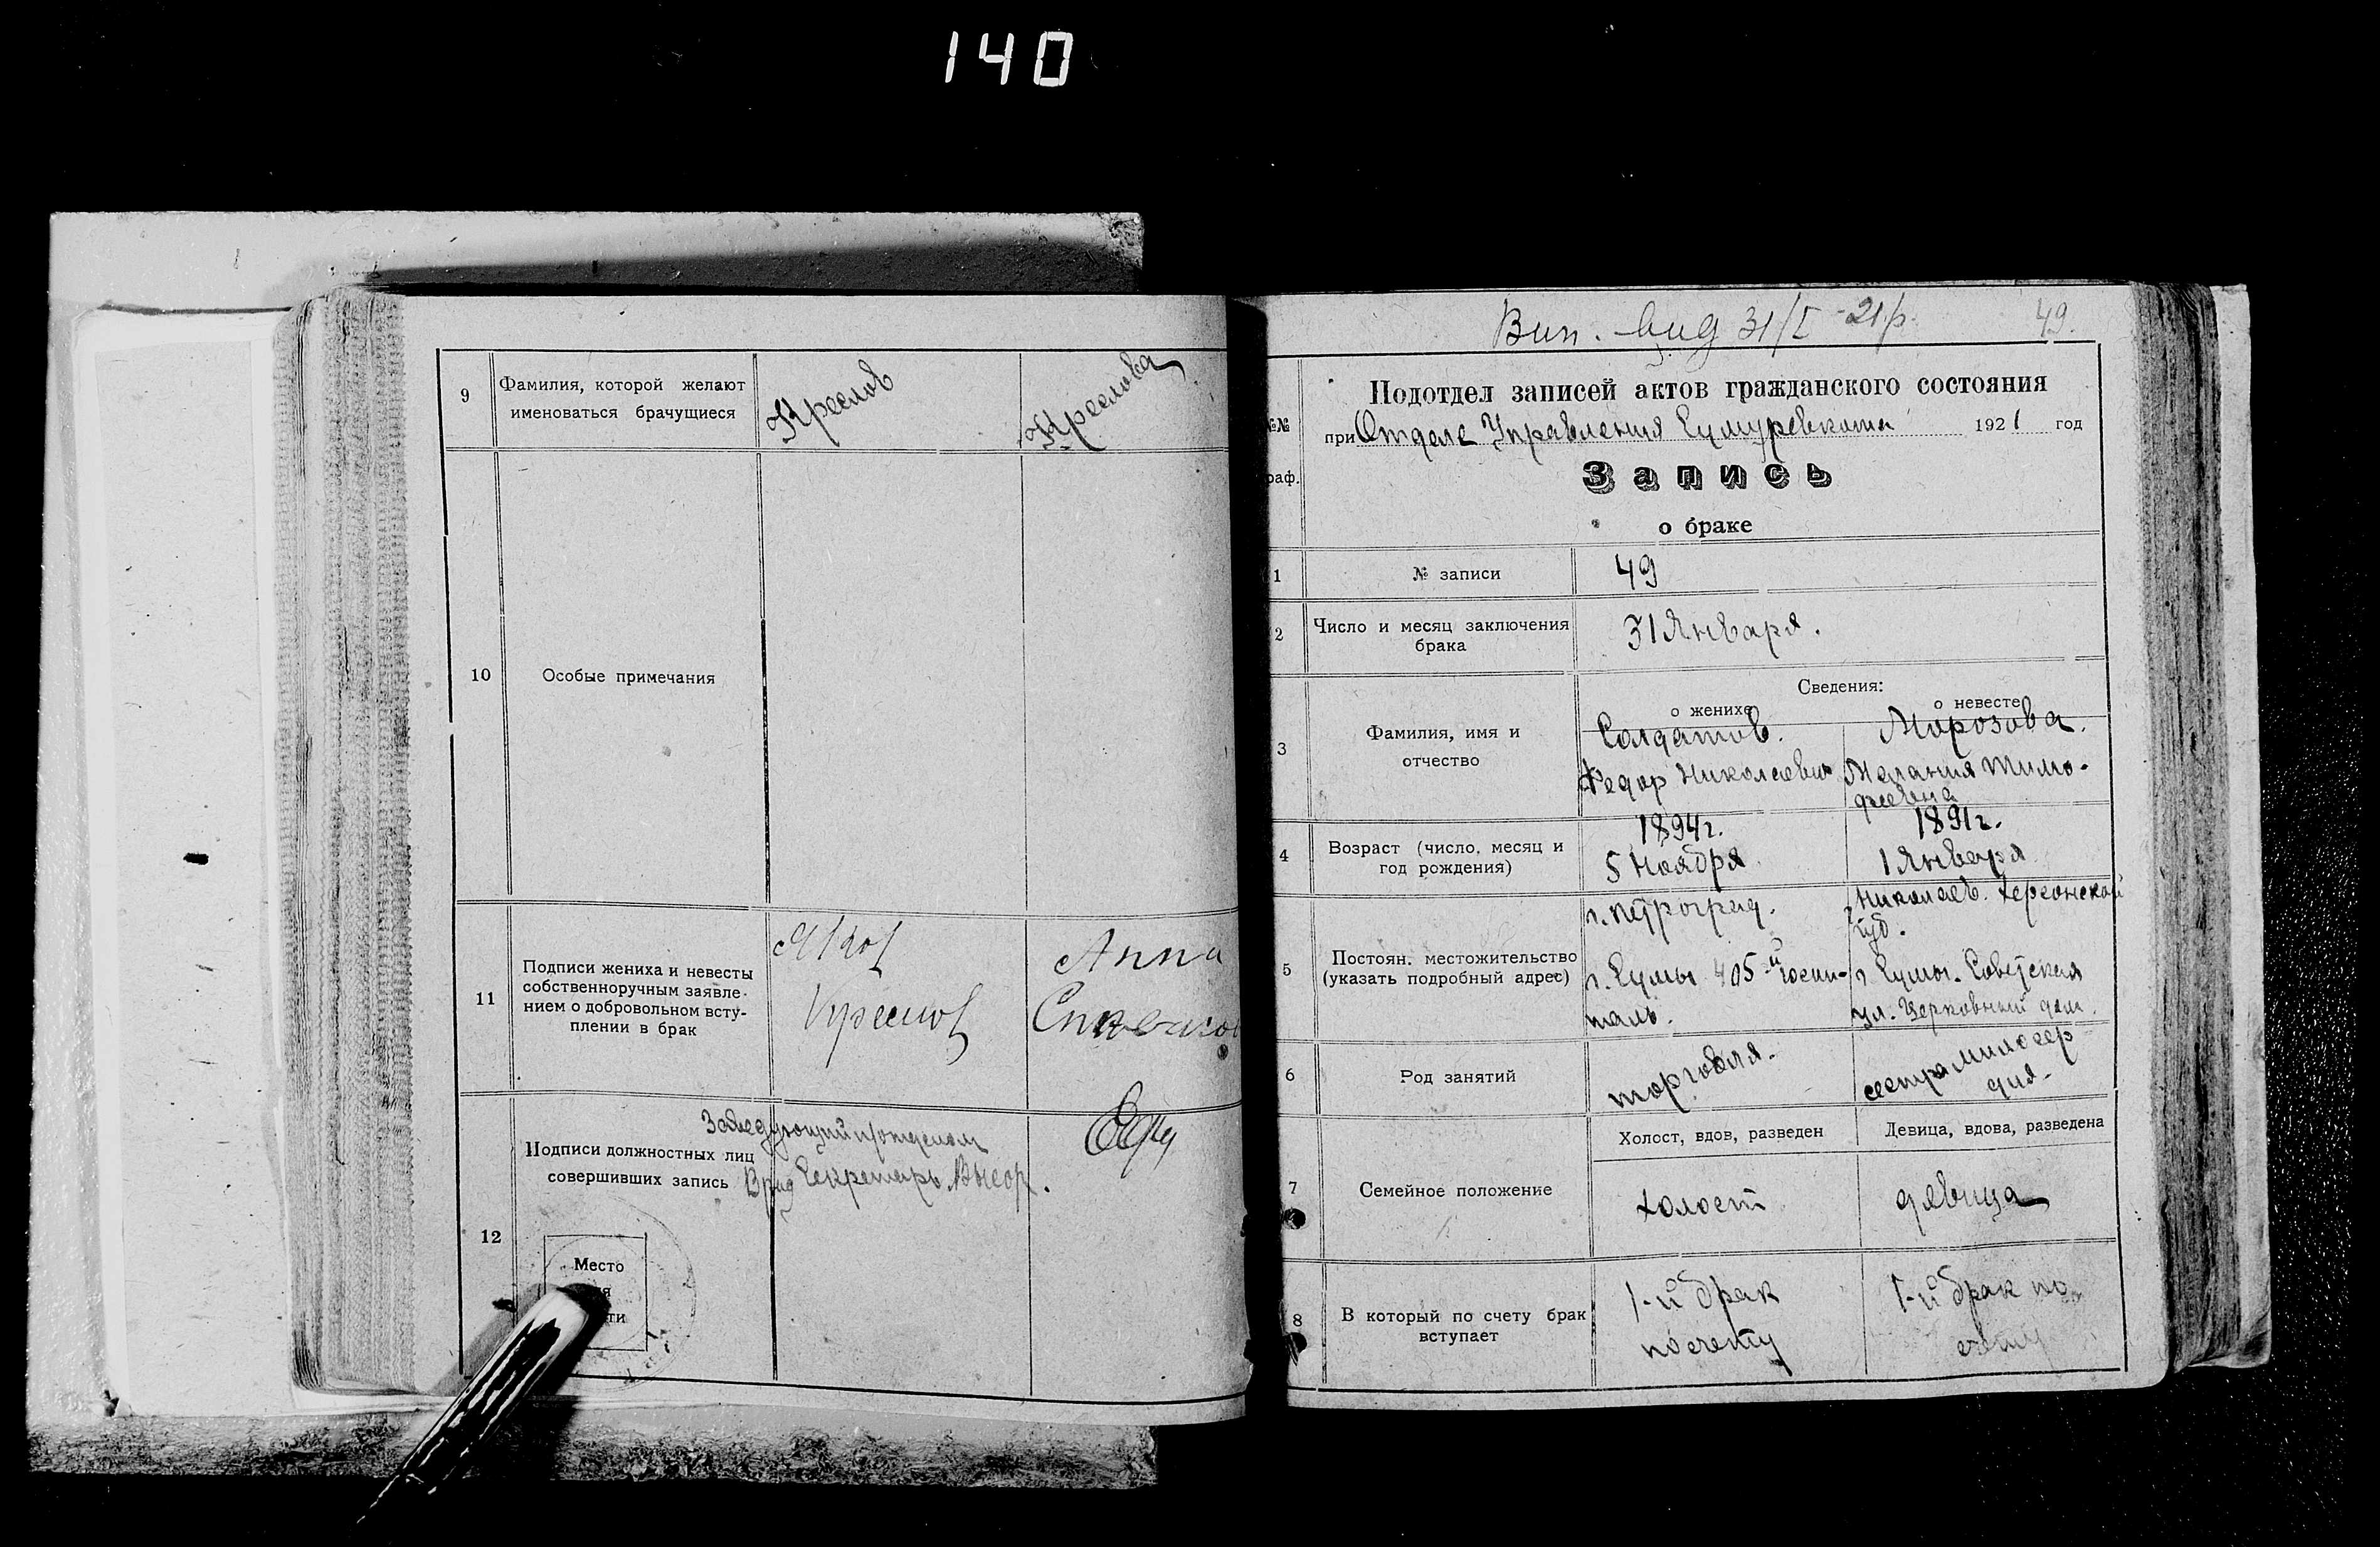 140
9
Фамилия, которой желают
именоваться брачущиеся
Креслов
Креслова
10
Особые примечания
11
Подписи жениха и невесты
собственноручным заявле-
нием о добровольном всту-
плении в брак
Креслов
Анна
12
Подписи должностных лиц
совершивших запись
Заведующий п/отделом
Врид Секретарь
Место
49.
31/I -21р.
№№
раф.
Подотдел записей актов гражданского состояния
при Отделе Управления Сумуревкома 1921 год
Запись
о браке
1
№ записи
49
2
Число и месяц заключения
брака
31 Января.
Сведения:
о женихе
о невесте
3
Фамилия, имя и
отчество
Солдатов.
Федор Николаевич
Морозова.
Мелания Тимо-
феевна
4
Возраст (число, месяц и
год рождения)
1894г.
5 Ноября
1891г.
1 Января
5
Постоян. местожительство
(указать подробный адрес)
г. Петроград.
г. Сумы 405-й госпи-
таль.
Николаев. Херсонской
губ.
г Сумы. Советская
ул. Церковный дом.
6
Род занятий
торговля.
сестра милосер
дия-
7
Семейное положение
Холост, вдов, разведен
Девица, вдова, разведена
холост
девица
8
В который по счету брак
вступает
1-й брак
по счету
1-й брак по
счету